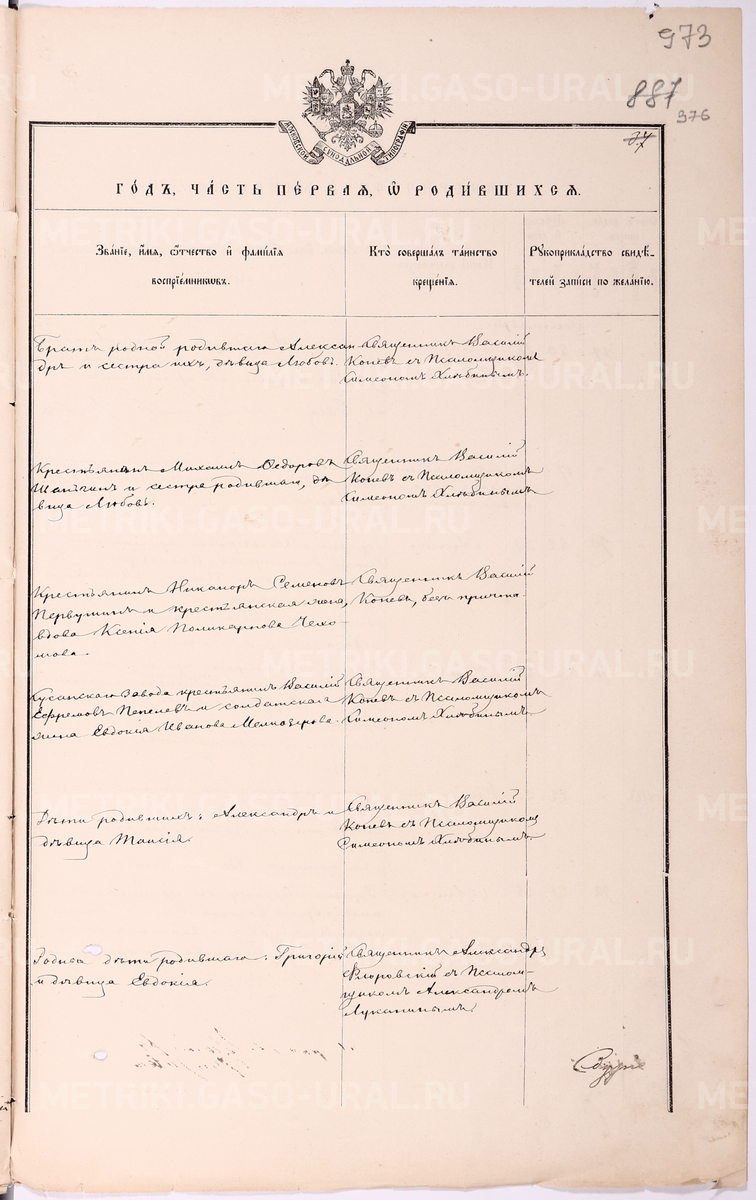 973
887
976
37
МОСКОВСКОЙ СѴНОДАЛЬНОЙ ТИПОГРАФІИ
ГО́ДЪ, ЧА́СТЬ ПЕ́РВАЯ, Ѽ РОДИ́ВШИХСЯ.
Зва́нїе, и҆́мя, ѻ҆́тчество и҆ фами́лїѧ
воспрїе́мникѡвъ.
Кто̀ соверша́лъ та́инство
креще́нїѧ.
Рꙋкоприкла́дство свидѣ́-
телей за́писи по жела́нїю.
Братъ родной родившаго Алексан
дръ и сестра ихъ, дѣвица Любовь.
Священникъ Василій
Коневъ съ Псаломщикомъ
Симеономъ Хлѣбинымъ.
Крестьянинъ Михаилъ Ѳедоровъ
и сестра родившаго, дѣ
вица Любовь.
Священникъ Василій
Коневъ съ Псаломщикомъ
Симеономъ Хлѣбинымъ
Крестьянинъ Никаноръ Семеновъ
Первушинъ и крестьянская жена,
вдова Ксенія Поликарпова Чехо-
мова.
Священникъ Василій
Коневъ, безъ причта.
Кусинскаго Завода крестьянинъ Василій
Ефремовъ Пепелевъ и солдатская
жена Евдокія Иванова Мелкозерова.
Священникъ Василій
Коневъ съ Псаломщикомъ
Симеономъ Хлѣбинымъ.
Дѣти родившихъ: Александръ и
дѣвица Таисія.
Священникъ Василій
Коневъ съ Псаломщикомъ
Симеономъ Хлѣбинымъ.
дѣти родившаго: Григорій
и дѣвица Евдокія.
Священникъ Александръ
Флоровскій съ Псалом-
щикомъ Александромъ
Лукинымъ.
METRIKI.GASO-URAL.RU